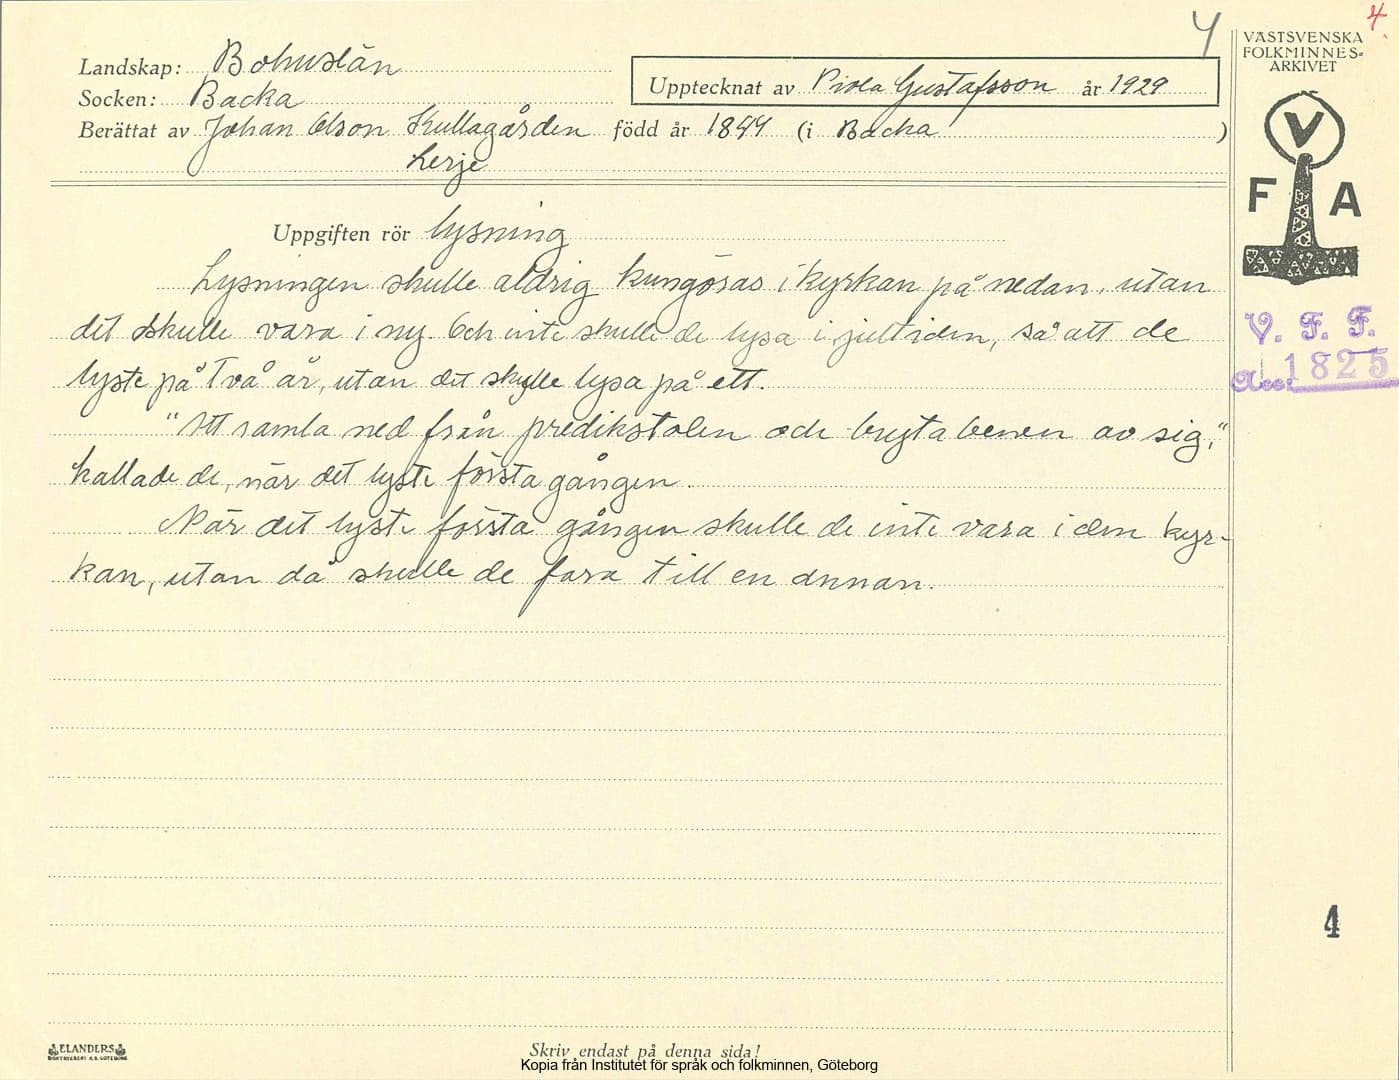 4
4.
VÄSTSVENSKA
FOLKMINNES-
ARKIVET
Landskap: Bohuslän
Socken: Backa
Upptecknat av Viola Gustafsson år 1929
Berättat av Johan Olson Kullagården född år 1844 (i Backa)
Lerje
V
F A
Uppgiften rör lysning
Lysningen skulle aldrig kungöras i kyrkan på nedan, utan
det skulle vara i ny. Och inte skulle de lysa i jultiden, så att de
lyste på två år, utan det skulle lysa på ett.
V. F. F.
Acc. 1825
"Att ramla ned från predikstolen och bryta benen av sig,"
kallade de, när det lyste första gången.
När det lyste första gången skulle de inte vara i den kyr-
kan, utan då skulle de fara till en annan.
4
ELANDERS
BOKTRYCKERI A.B. GÖTEBORG
Skriv endast på denna sida!
Kopia från Institutet för språk och folkminnen, Göteborg